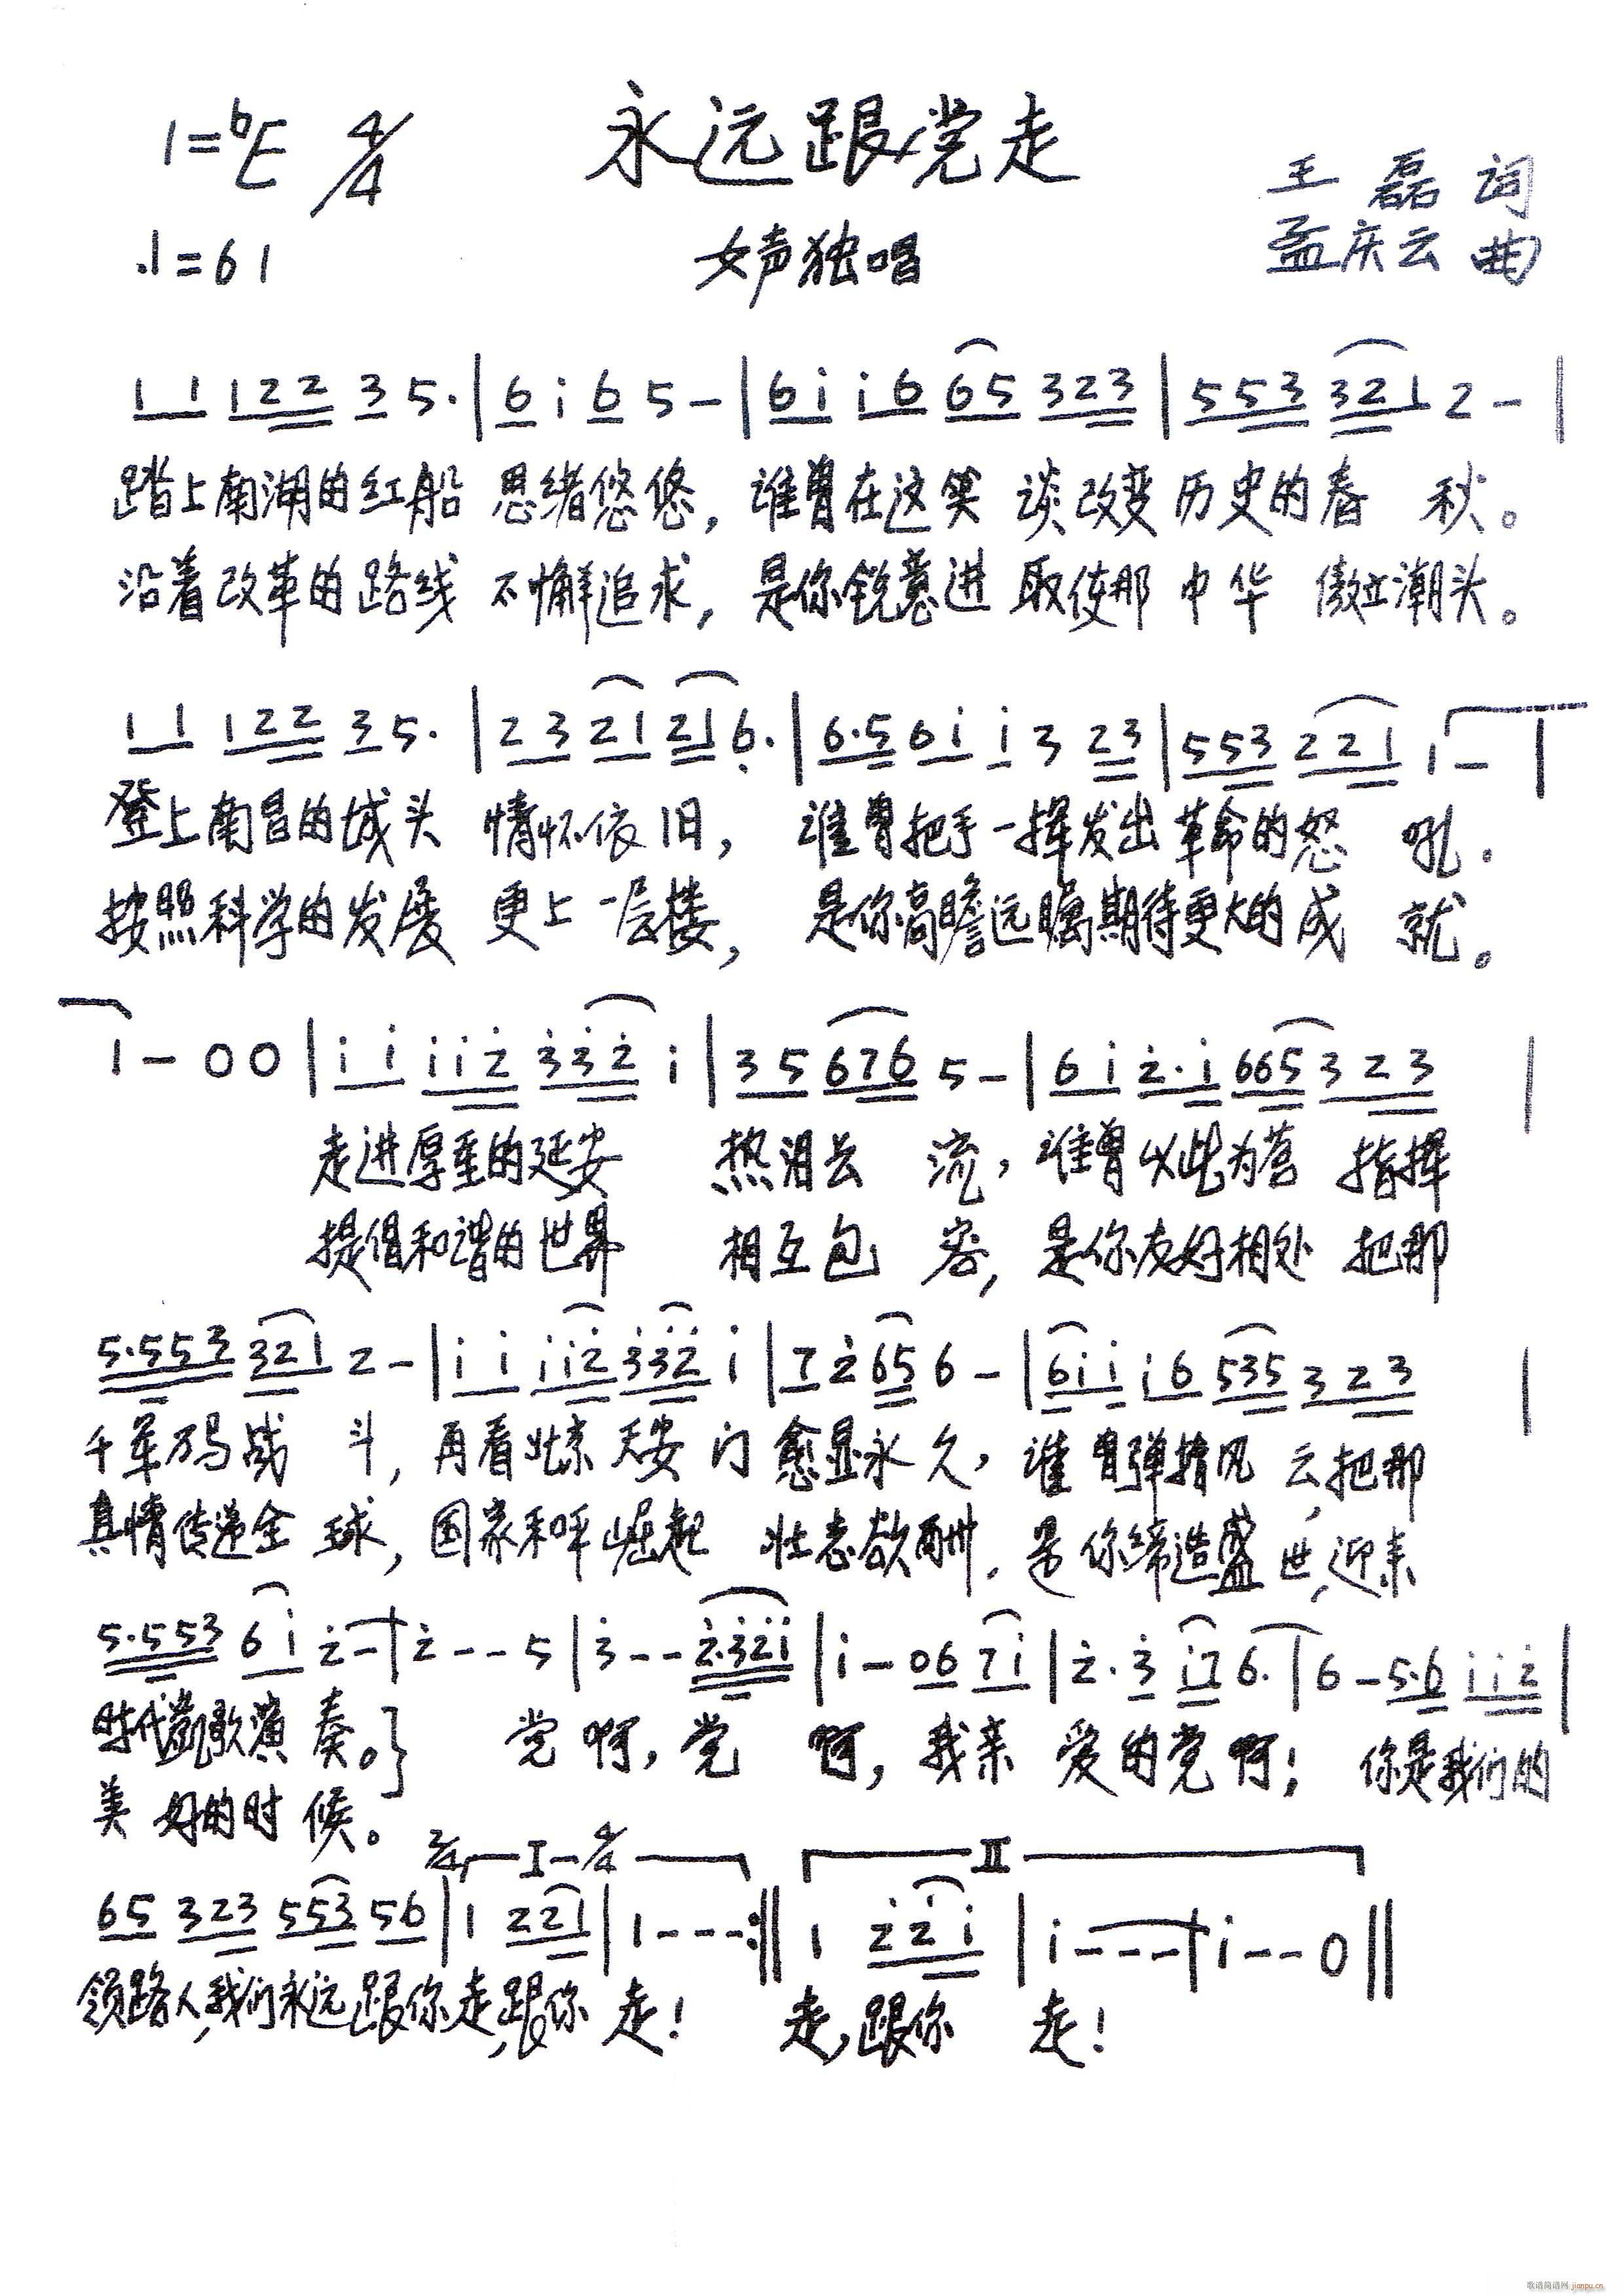 1=♭E 4/4 永远跟党走 王磊 词
♩=61 女声独唱 孟庆云 曲
1 1 1 2 2 3 5· | 6 i 6 5 - | 6 i i 6 6 5 3 2 3 | 5 5 3 3 2 1 2 - |
踏上南湖的红船 思绪悠悠，谁曾在这笑 谈改变历史的春 秋。
沿着改革的路线 不懈追求，是你锐意进 取使那 中华 傲立潮头。
1 1 1 2 2 3 5· | 2 3 2 1 2 1 6· | 6·5 6 i i 3 2 3 | 5 5 3 2 2 1 1 - |
登上南昌的城头 情怀依旧，谁曾把手一挥发出革命的怒 吼．
按照科学的发展 更上一层楼，是你高瞻远瞩期待更大的成 就。
1 - 0 0 | i i i i 2 3 3 2 i | 3 5 6 7 6 5 - | 6 i 2·i 6 6 5 3 2 3 |
走进厚重的延安 热泪长 流，谁曾以此为营 指挥
提倡和谐的世界 相互包 容，是你友好相处 把那
5·5 5 3 3 2 1 2 - | i i i i 2 3 3 2 i | 7 2 6 5 6 - | 6 i i i 6 5 3 5 3 2 3 |
千军万马战 斗，再看北京天安门 愈显永久，谁曾弹指风 云，把那
真情传递全 球，国家和平崛起 壮志欲酬．是你缔造盛世，迎来
5·5 5 3 6 i 2 - | 2 - - 5 | 3 - - 2·3 2 i | i - 0 6 7 i | 2·3 i 7 6· | 6 - 5·6 i i 2 |
时代凯歌演 奏。} 党啊，党 啊，我亲 爱的党啊！ 你是我们的
美好的时候。
2/4 I 4/4 II
6 5 3 2 3 5 5 3 5 6 | 1 2 2 1 | 1 - - - :‖ 1 2 2 i | i - - - | i - - 0 ‖
领路人，我们永远跟你走，跟你 走！ 走，跟你 走！
歌谱简谱网 jianpu.cn